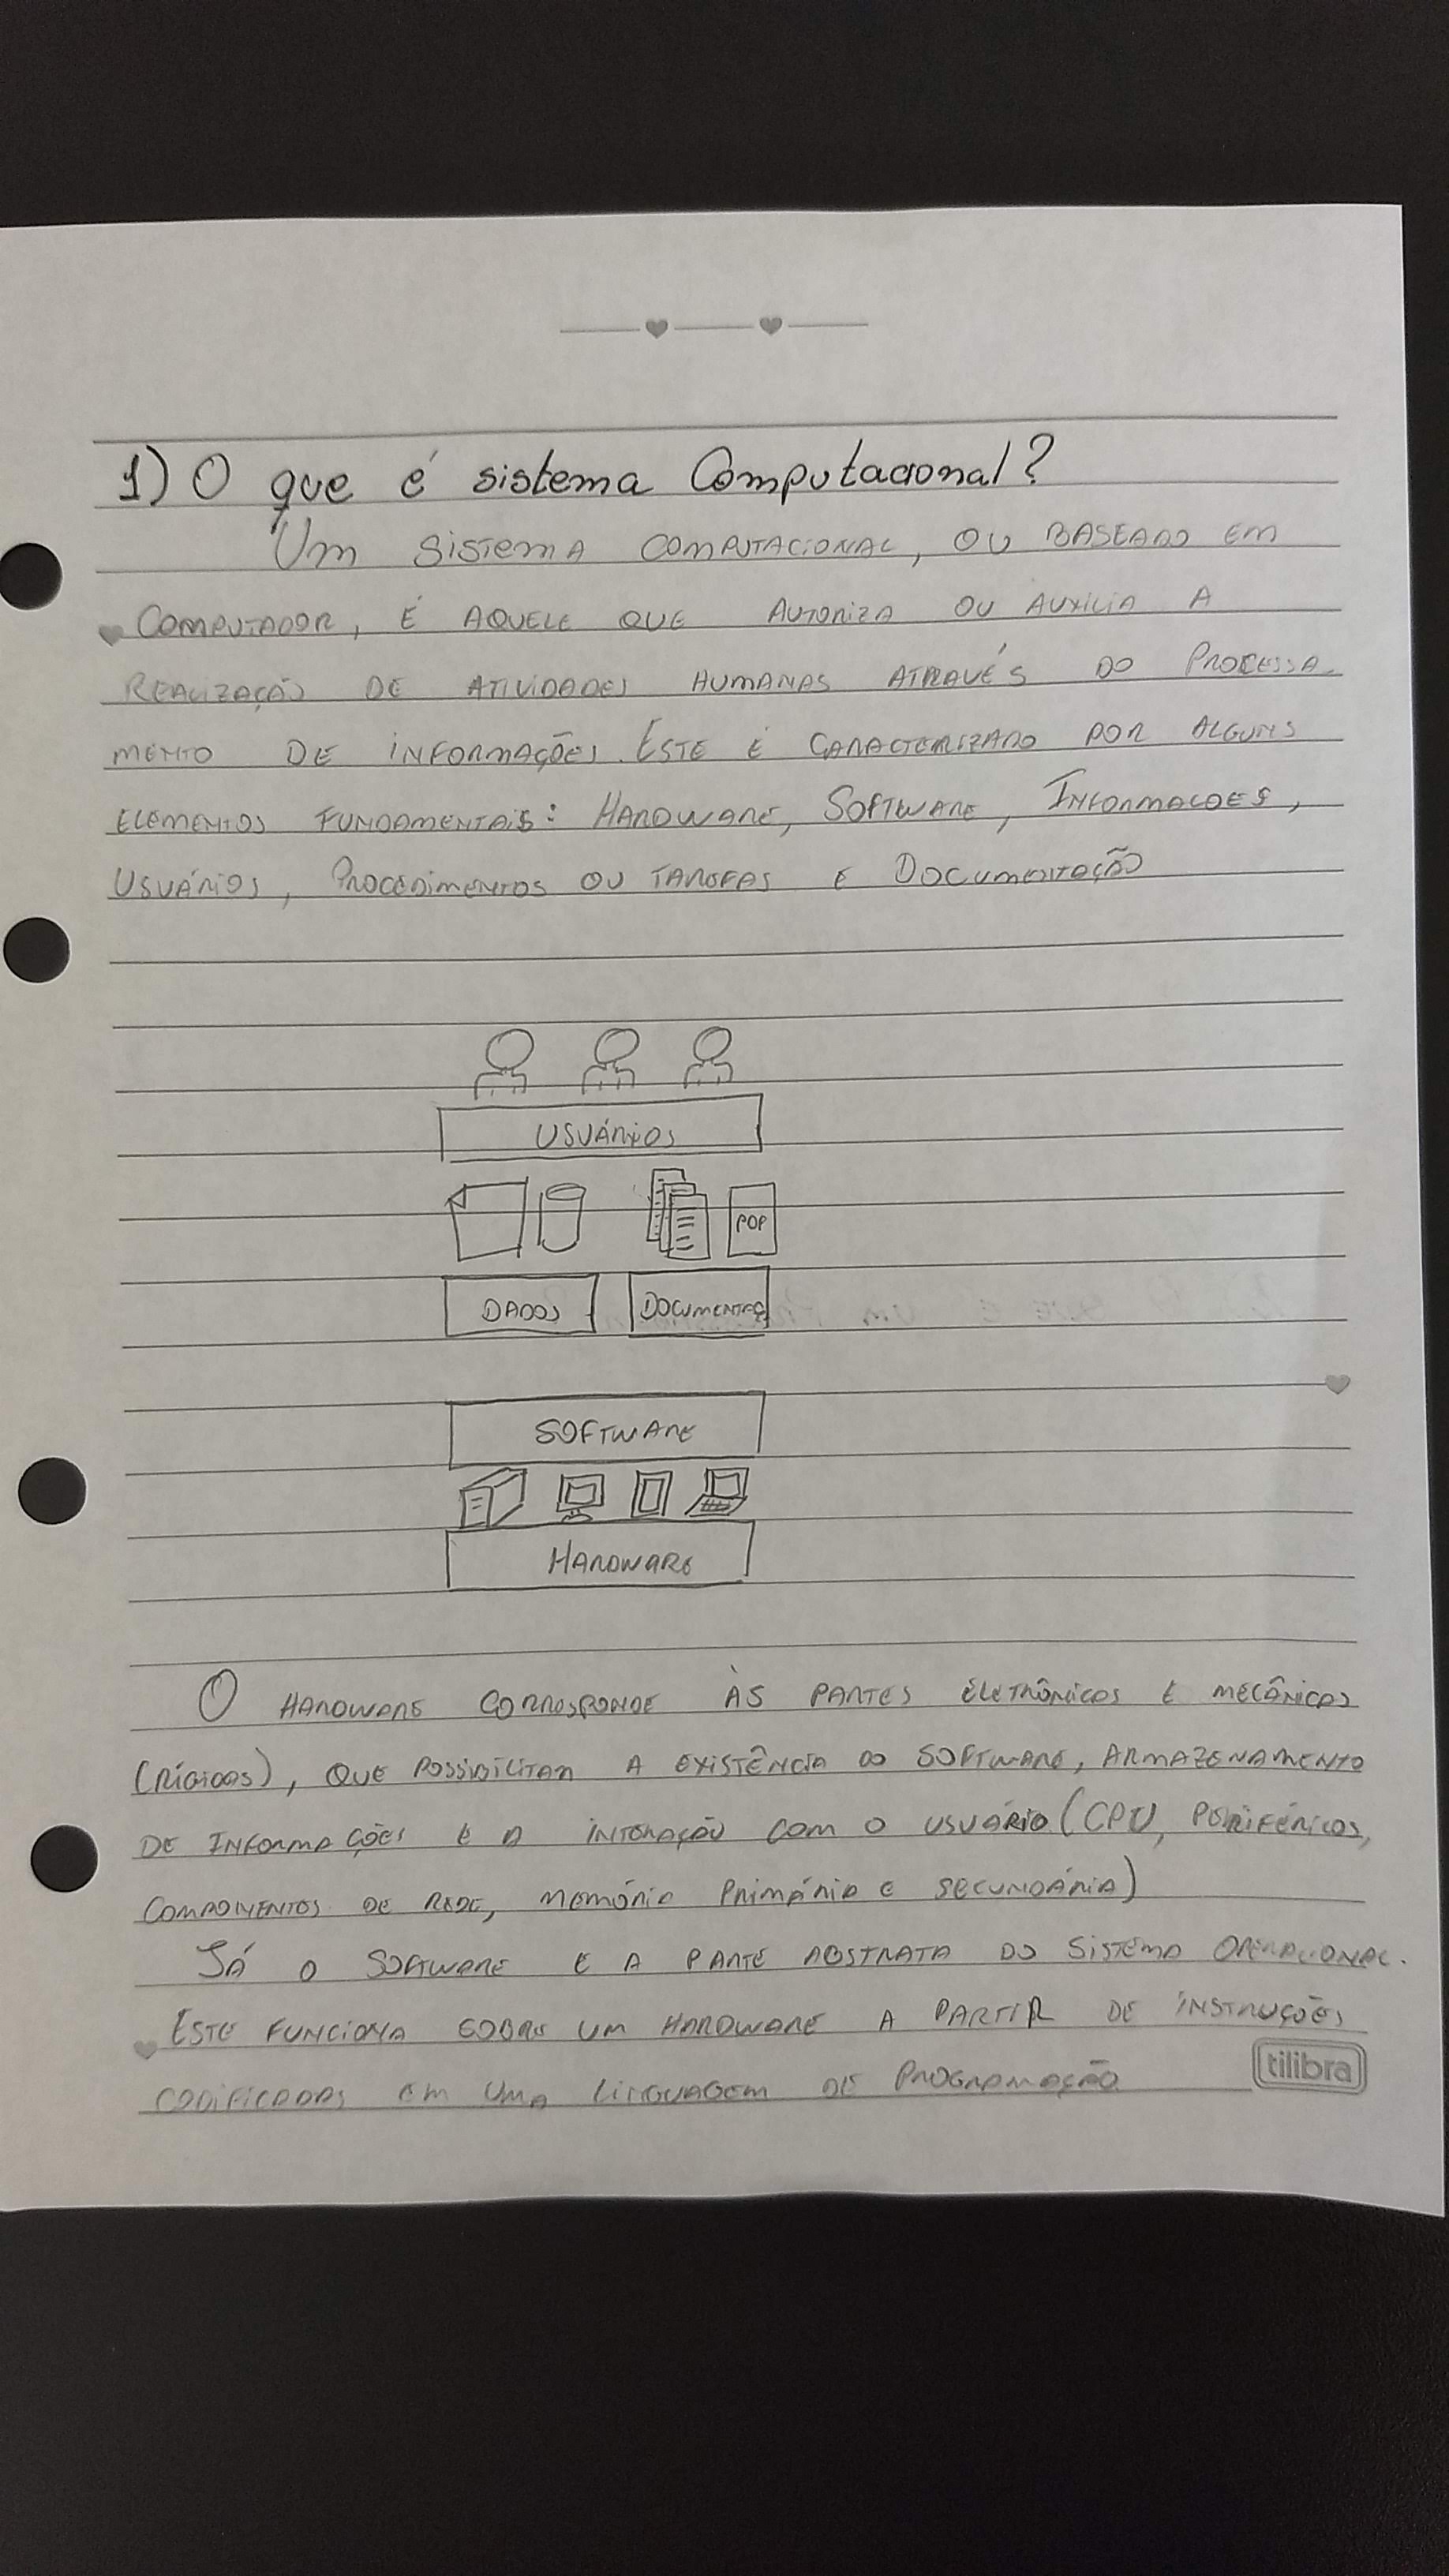 1) O que é sistema Computacional?
Um sistema computacional, ou baseado em
computador, é aquele que autoriza ou auxilia a
realização de atividades humanas através do processa-
mento de informações. Este é caracterizado por alguns
elementos fundamentais: Hardware, Software, Informacoes,
Usuários, Procedimentos ou tarefas e Documentação
USUÁRIOS
POP
DADOS DOCUMENTAÇ
SOFTWARE
HARDWARE
O hardware corresponde às partes eletrônicas e mecânicas
(rígidas), que possibilitam a existência do software, armazenamento
de informações e a interação com o usuário (CPU, periféricos,
componentes de rede, memória primária e secundária)
Já o software e a parte abstrata do sistema operacional.
Este funciona sobre um hardware a partir de instruções
codificadas em uma linguagem de programação
tilibra